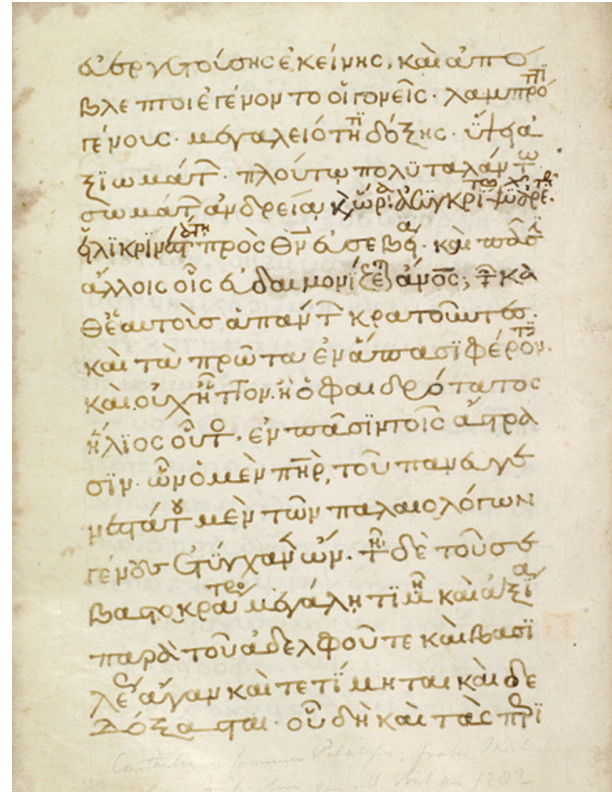 εὐεργετούσης ἐκείνης, καὶ ἀπό
βλεπτοι ἐγένοντο οἱ γονεῖς· λαμπρότητι
γένους· μεγαλειότητι δόξης· ὕψει ἀ
ξιωμάτ· πλούτω πολυταλάντω
σωμάτ ἀνδρεία κ ὥρα ἀσυγκρίτω
πρὸς θν εὐσεβεία· καὶ
ἄλλοις οἷς εὐδαιμονίζεται ἄνος; τ κα
θ' ἑαυτοὺς ἁπάντ κρατοῦντες·
καὶ τὰ πρῶτα ἐν ἅπασι φέροντες·
καὶ οὐχ ἧττον ἢ ὁ φαιδρότατος
ἥλιος οὗτος· ἐν πᾶσιν τοῖς ἄστρα
σιν· ὧν ὁ μὲν πηρ, τοῦ πανευγε
νεστάτου μὲν τῶν παλαιολόγων
γένους ἐτύγχανεν ὤν· τῆ δὲ τοῦ σε
βαστοκράτορος μεγάλη τιμῆ καὶ ἀξία
παρὰ τοῦ ἀδελφοῦ τε καὶ βασι
λέως ἄγαν καὶ τετίμηται καὶ δε
δόξασται· οὗ δὴ καὶ τὰς